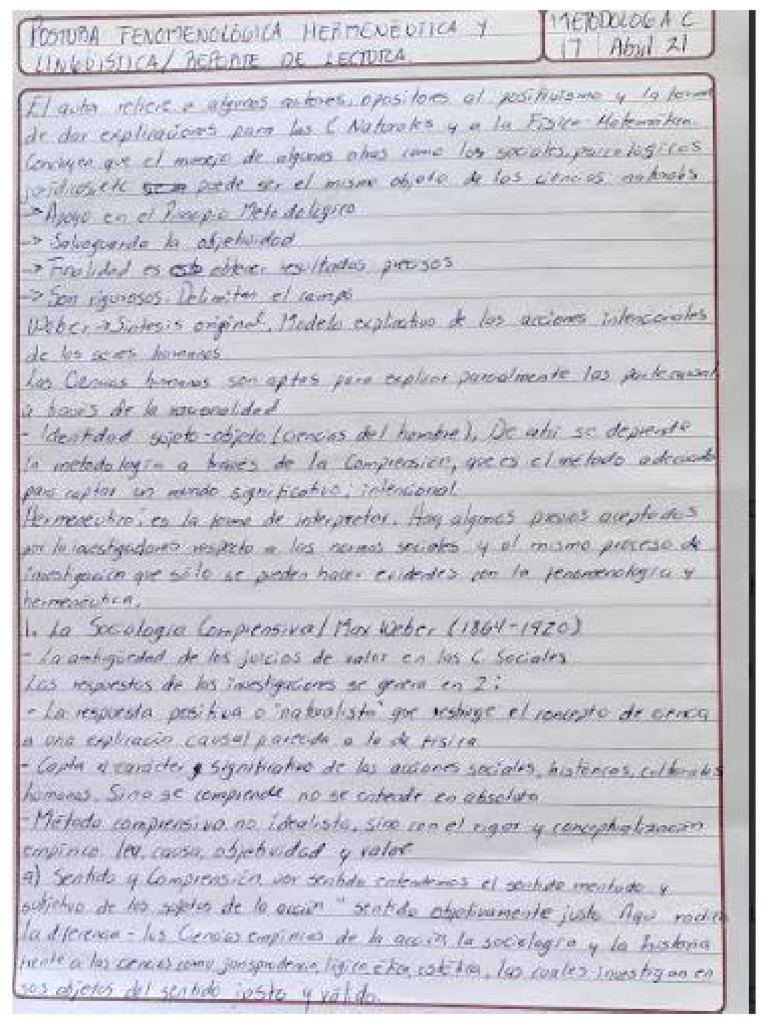 POSTURA FENOMENOLÓGICA HERMENÉUTICA Y
LINGÜÍSTICA / REPORTE DE LECTURA
METODOLOGÍA C
17 Abril 21
El autor refiere a algunos autores opositores al positivismo y la forma
de dar explicaciones para las C Naturales y a la Física Matemática.
Concluyen que el manejo de algunas otras como los sociales, psicológicos
jurídicos, etc puede ser el mismo objeto de las ciencias naturales
→ Apoyo en el Principio Metodológico
→ Salvaguarda la objetividad
→ Finalidad es obtener resultados precisos
→ Son rigurosos. Delimitan el campo
Weber → Síntesis original. Modelo explicativo de las acciones intencionales
de los seres humanos
Las Ciencias humanas son aptas para explicar parcialmente las
a través de la racionalidad
- Identidad sujeto-objeto (ciencias del hombre). De ahí se
la metodología a través de la Comprensión, que es el método adecuado
para captar un mundo significativo; intencional.
es la forma de interpretar. Hay algunos previos aceptados
por la respecto a las normas sociales y al mismo proceso de
investigación que sólo se pueden hacer evidentes con la fenomenología y
hermenéutica.
1. La Sociología Comprensiva / Max Weber (1864-1920)
- La ambigüedad de los juicios de valor en las C. Sociales
Las respuestas de las investigaciones se genera en 2:
- La respuesta positiva o "naturalista" que restringe el concepto de ciencia
a una explicación causal parecida a la de física.
- Capta el carácter significativo de las acciones sociales, históricas, culturales
humanas. Sino se comprende no se entiende en absoluto
- Método comprensivo no idealista, sino con el rigor y conceptualización
empírico ley, causa, objetividad y valor
a) Sentido y Comprensión por sentido entendemos el sentido mentado y
subjetivo de los sujetos de la acción "sentido objetivamente justo. Aquí radica
la diferencia - las Ciencias empíricas de la acción, la sociología y la historia
frente a las ciencias como jurisprudencia, lógica, ética, estética, las cuales investigan en
sus objetos del sentido justo y válido.